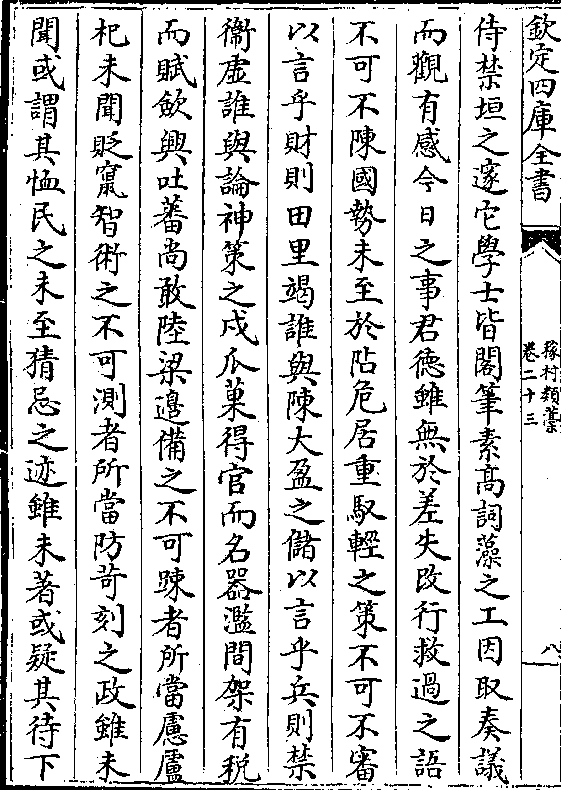 欽定四庫全書
稼村類藁
卷二十三
八
侍禁垣之邃它學士皆閣筆素高詞藻之工因取奏議
而觀有感今日之事君德雖無於差失改行救過之語
不可不陳國勢未至於阽危居重馭輕之策不可不審
以言乎財則田里竭誰與陳大盈之儲以言乎兵則禁
衞虛誰與論神策之戍瓜菓得官而名器濫間架有稅
而賦斂興吐蕃尚敢陸梁邉備之不可踈者所當慮盧
𣏌未聞貶竄智術之不可測者所當防苛刻之政雖未
聞或謂其恤民之未至猜忌之迹雖未著或疑其待下